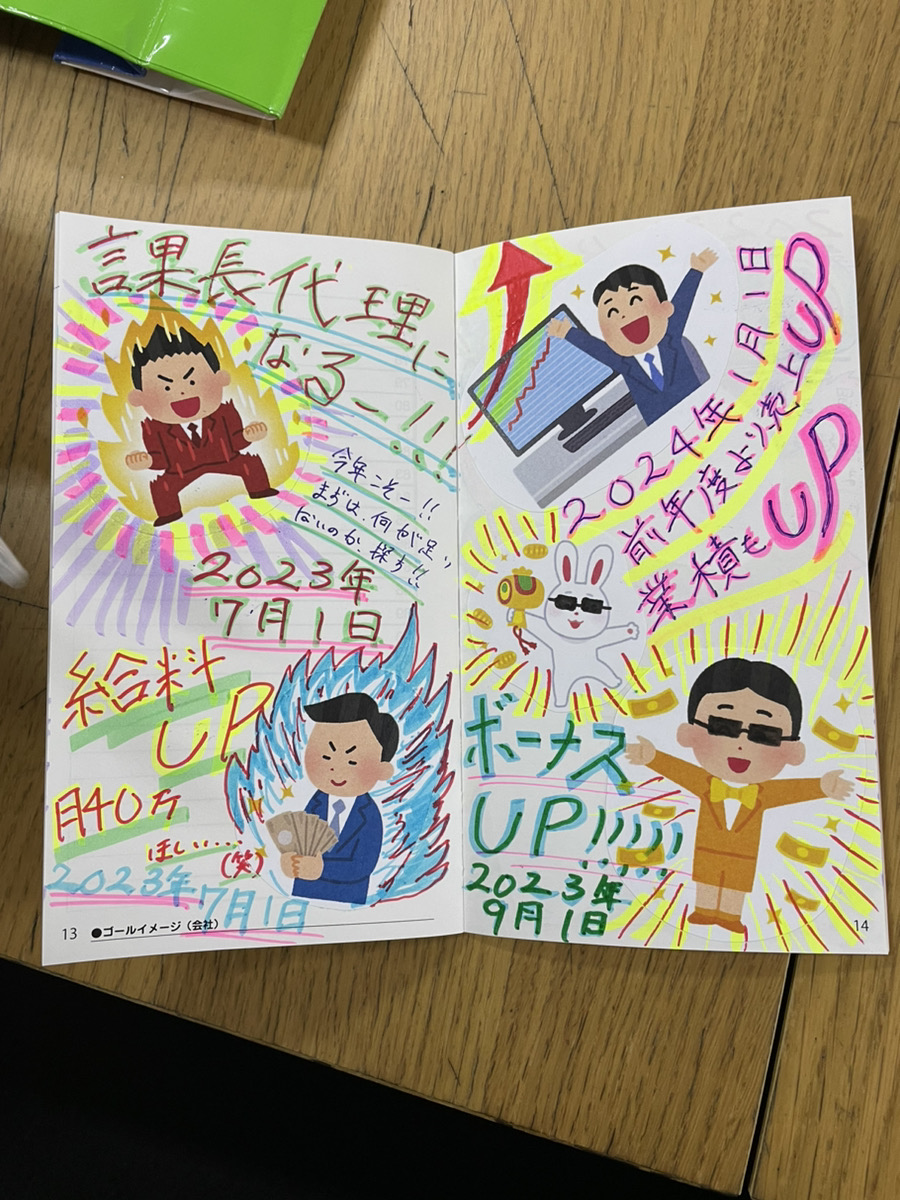 課長代理に
なるー!!!
今年こそー!!
まずは、何が足り
ないのか、探す!!
2023年
7月1日
給料
UP
月40万
ほしい…..
(笑)
2023年7月1日
13 ●ゴールイメージ(会社)
2024年1月1日
前年度より売上UP
業績もUP
ボーナス
UP!!!!!
2023年
9月1日
14